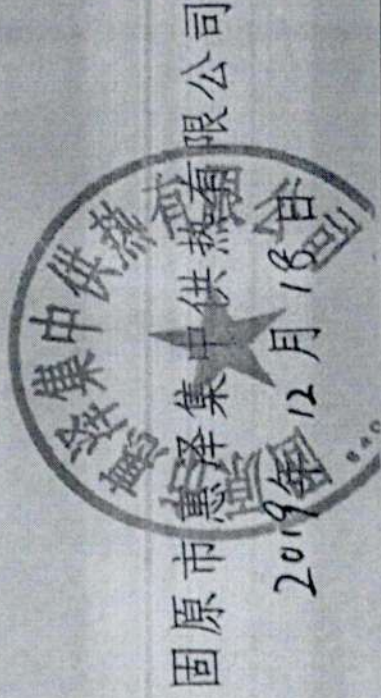 固原市惠泽集中供热有限公司
2019年12月18日
惠泽集中供热有限公司